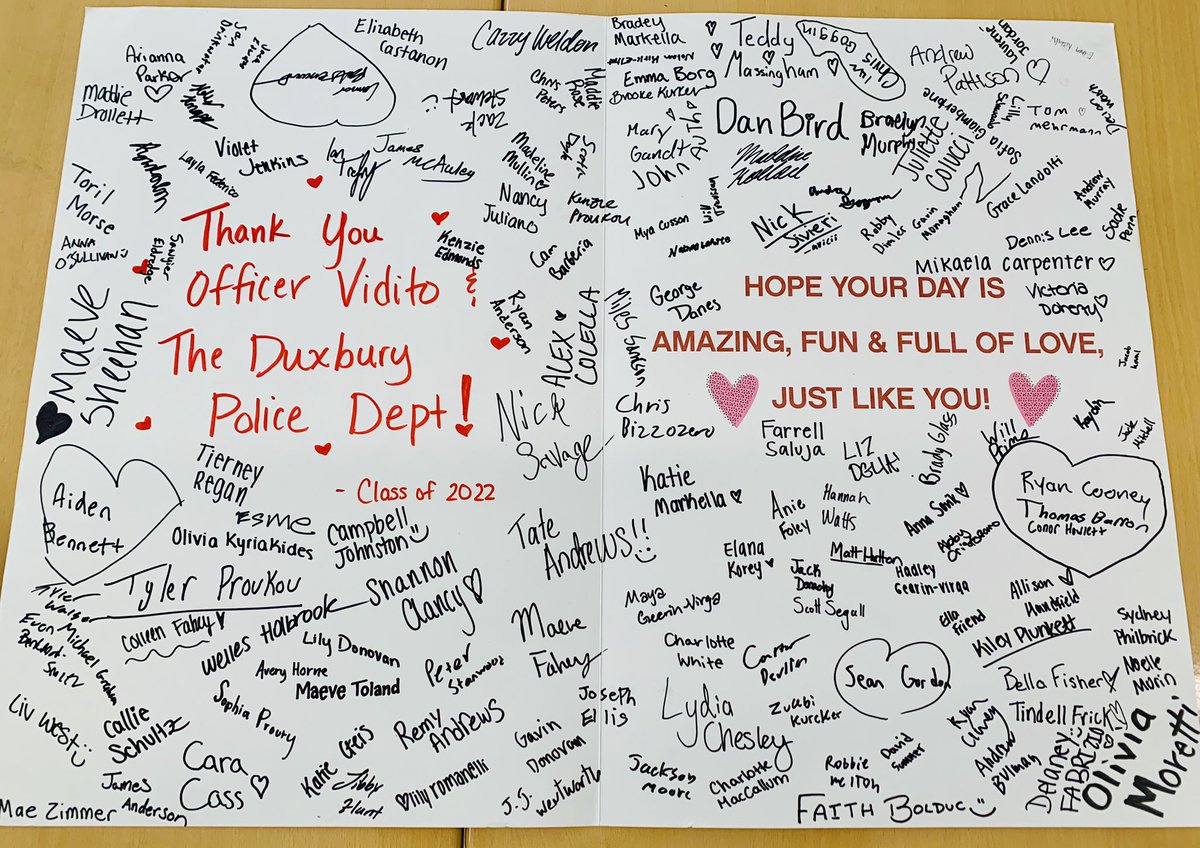 Elizabeth
Castanon
Cazzy Weldon
Arianna
Parker
Maddie
Drollett
Chris
Peters
Maddie
Rose
Zack
Stewart
Violet
Jenkins
Layla Federico
Ian
James
McAuley
Madeline
Mullin
Nancy
Juliano
Kenzie
Proukou
Toril
Morse
Anna
O'Sullivan
Sawyer
Eldredge
Kenzie
Edmunds
Cam
Barberia
Thank You
Officer Vidito &
The Duxbury
Police Dept!
- Class of 2022
Maeve
Sheehan
Ryan
Anderson
Alex
Colella
Nick
Savage
Aiden
Bennett
Tierney
Regan
Esme
Olivia Kyriakides
Campbell
Johnston
Tate
Andrews!!
Tyler Proukou
Shannon
Clancy
Tyler
Walser
Evan
Michael
Colleen Fahey
Welles Holbrook
Lily Donovan
Avery Horne
Maeve Toland
Peter
Stanwood
Maeve
Fahey
Liv West
Callie
Schultz
Sophia Proury
Remy
Andrews
Gavin
Donovan
Joseph
Ellis
James
Anderson
Cara
Cass
Katie
Creis
Libby
Hunt
lily romanelli
J.J. Wentworth
Mae Zimmer
Bradey
Markella
Emma Borg
Brooke Kurker
Teddy
Massingham
Chris Goggin
Andrew
Pattison
Laurene
Jordan
Lilly
Tom
mehrmann
Dan Bird
Braelyn
Murphy
Juliette
Colucci
Sofia Giambertone
Mary
Gandt
John
Auth
Madeline
Wallace
Grace Landolfi
Andrew
Murray
Sade
Penn
Mya Cusson
Nick
Sivieri
Robby
Dimler
Gavin
Monaghan
Dennis Lee
Mikaela Carpenter
George
Danes
Victoria
Doherty
HOPE YOUR DAY IS
AMAZING, FUN & FULL OF LOVE,
JUST LIKE YOU!
Chris
Bizzozero
Farrell
Saluja
Liz
Brady Glass
Will
Prims
Kaydin
Jack
Mitchell
Katie
Markella
Anie
Foley
Hannah
Watts
Anna Smith
Ryan Cooney
Thomas Barron
Conor Howlett
Elana
Korey
Jack
Dorothy
Matt Hutton
Hadley
Gearin-Virga
Scott Segall
Maya
Gearin-Virga
Allison
Ella
Friend
Kiley Plunkett
Sydney
Philbrick
Charlotte
White
Carter
Devlin
Sean Gordon
Bella Fisher
Noelle
Morin
Lydia
Chesley
Zuebi
Kurcker
Kyra
Tindell Frick
Andrew
Bulman
David
Summer
Delaney
Fabrizio
Olivia
Moretti
Jackson
Moore
Charlotte
MacCallum
Robbie
Melton
Faith Bolduc